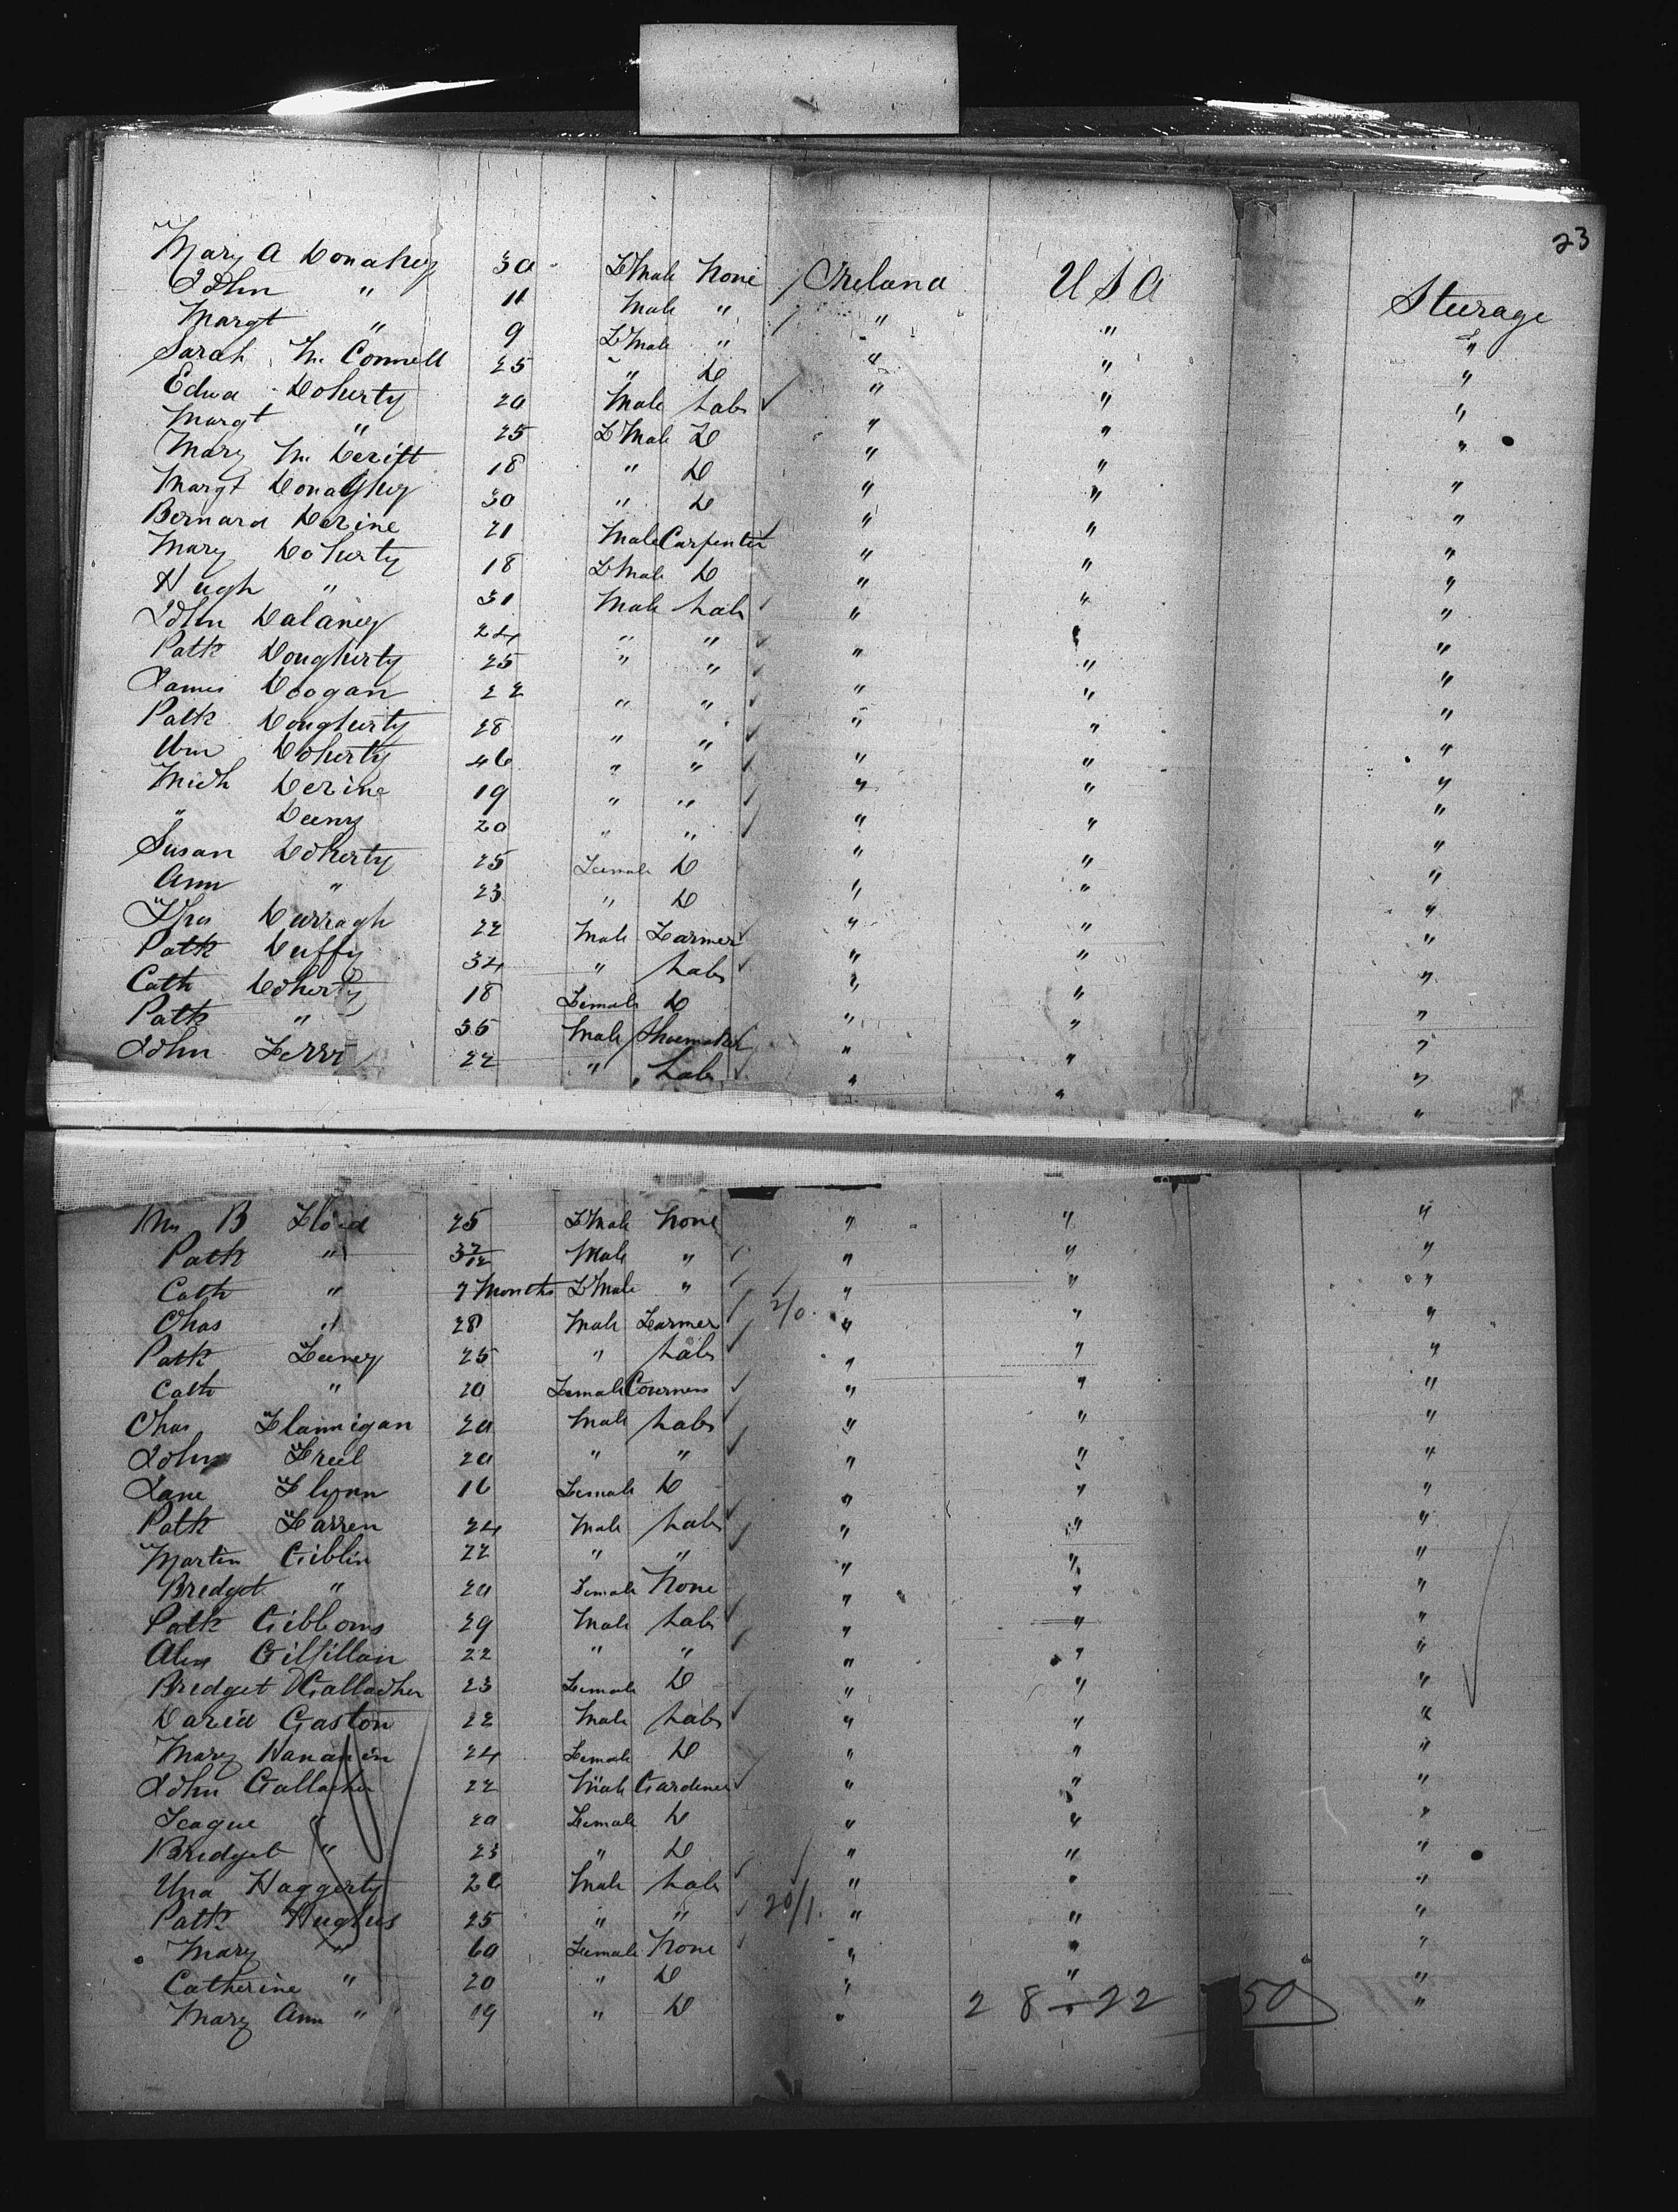 23
Mary A Donahey 30 F Male None Ireland U S A Steerage
John " 11 Male " " " "
Margt " 9 F Male " " " "
Sarah Mc Connell 25 " D " " "
Edwd Doherty 20 Male Labr " " "
Margt " 25 F Male D " " "
Mary Mc Devitt 18 " D " " "
Margt Donaghey 30 " D " " "
Bernard Devine 21 Male Carpenter " " "
Mary Doherty 18 F Male D " " "
Hugh " 31 Male Labr " " "
John Dalaney 24 " " " " "
Patk Dougherty 25 " " " " "
James Doogan 22 " " " " "
Patk Dougherty 28 " " " " "
Wm Doherty 46 " " " " "
Mich Devine 19 " " " " "
" Deeny 20 " " " " "
Susan Doherty 25 Female D " " "
Ann " 23 " D " " "
Thos Durragh 22 Male Farmer " " "
Patk Duffy 34 " Labr " " "
Cath Doherty 18 Female D " " "
Patk " 35 Male Shoemaker " " "
John Ferry 22 " Labr " " "
Mrs B Floid 25 F Male None " " "
Patk " 3 7/12 Male " " " "
Cath " 7 Months F Male " " " "
Chas " 28 Male Farmer 2/0 " " "
Patk Feeney 25 " Labr " " "
Cath " 20 Female Governess " " "
Chas Flannigan 20 Male Labr " " "
John Freel 20 " " " " "
Jane Flynn 16 Female D " " "
Patk Farren 24 Male Labr " " "
Martin Giblin 22 " " " " "
Bredget " 20 Female None " " "
Patk Gibbons 29 Male Labr " " "
Alex Gilfillan 22 " " " " "
Bredget Gallagher 23 Female D " " "
David Gaston 22 Male Labr " " "
Mary Hananin 24 Female D " " "
John Gallagher 22 Male Gardener " " "
Teague " 20 Female D " " "
Bredget " 23 " D " " "
Una Haggerty 26 Male Labr " " "
Patk Hughes 25 " " 20/1. " " "
Mary " 60 Female None " " "
Catherine " 20 " D " " "
Mary Ann " 19 " D " 2 8 - 22 50 "